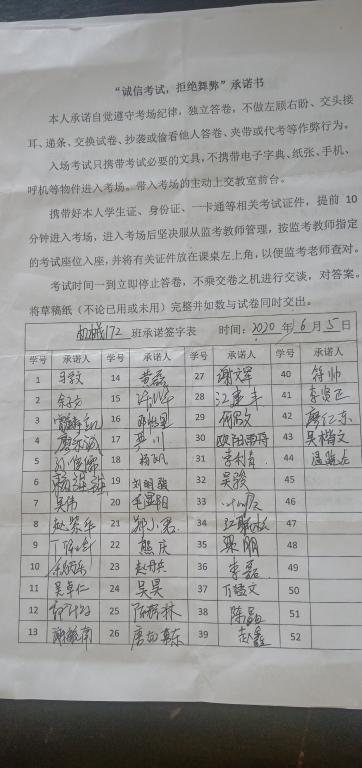 “诚信考试，拒绝舞弊”承诺书
本人承诺自觉遵守考场纪律，独立答卷，不做左顾右盼、交头接
耳、递条、交换试卷、抄袭或偷看他人答卷、夹带或代考等作弊行为。
入场考试只携带考试必要的文具，不携带电子字典、纸张、手机、
呼机等物件进入考场。带入考场的主动上交教室前台。
携带好本人学生证、身份证、一卡通等相关考试证件，提前 10
分钟进入考场，进入考场后坚决服从监考教师管理，按监考教师指定
的考试座位入座，并将有关证件放在课桌左上角，以便监考老师查对。
考试时间一到立即停止答卷，不乘交卷之机进行交谈，对答案。
将草稿纸（不论已用或未用）完整并如数与试卷同时交出。
机械172 班承诺签字表 时间：2020 年 6 月 5 日
学号 承诺人 学号 承诺人 学号 承诺人 学号 承诺人
1 14 黄磊 27 谢文辉 40 符帅
2 15 28 41 李贤正
3 16 29 42 廖仁东
4 17 30 欧阳 43 吴楷文
5 18 杨帆 31 44 温
6 19 刘明强 32 吴骏 45
7 吴伟 20 毛显阳 33 46
8 赵荣华 21 34 47
9 22 熊庆 35 梁朋 48
10 23 36 李磊 49
11 吴卓仁 24 吴昊 37 万 文 50
12 25 38 陈晶 51
13 26 唐 东 39 赵鑫 52